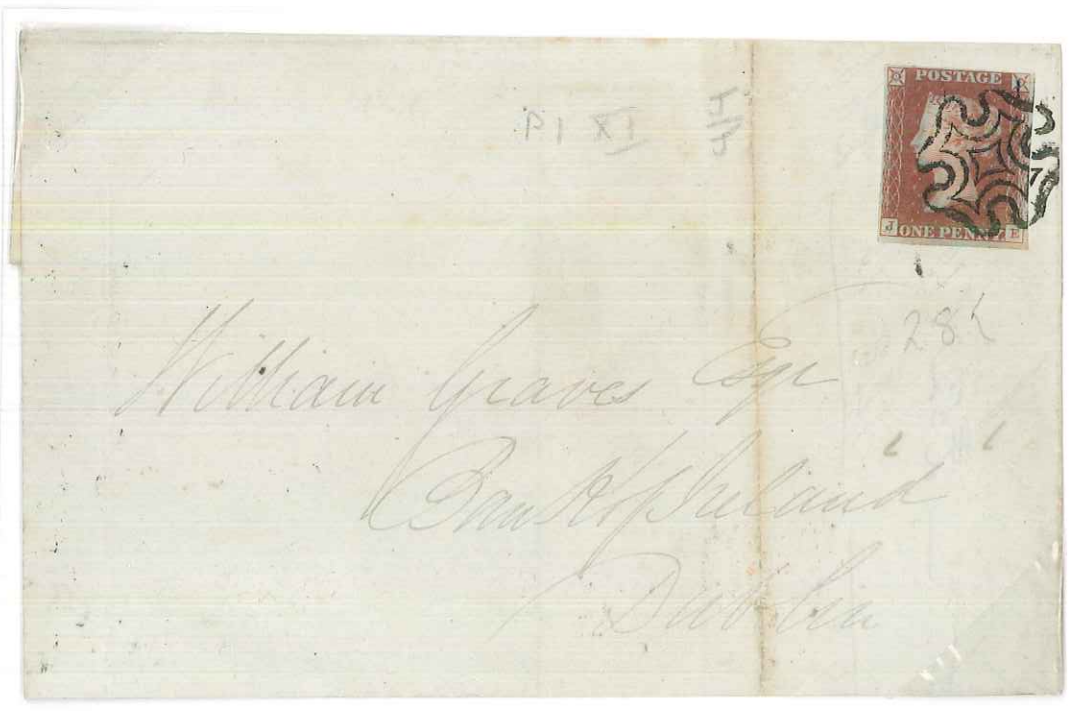 POSTAGE
J ONE PENNY E
P1 XI
28
William Graves Esqr
Bank of Ireland
Dublin